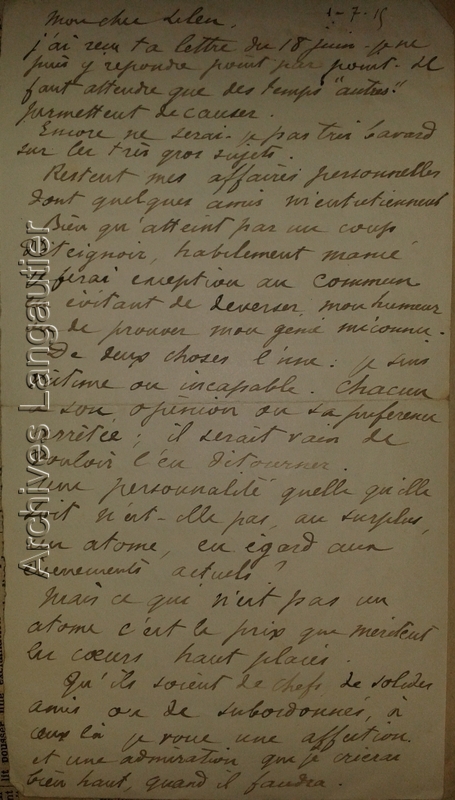 Mon cher Lelen. 1-7-15
j'ai reçu ta lettre du 18 juin. je ne
puis y répondre point par point. Il
faut attendre que des temps "autres"
permettent de causer.
Encore ne serai-je pas très bavard
sur les très gros sujets.
Restent mes affaires personnelles
dont quelques amis m'entretiennent
Bien qu'atteint par un coup
d'éteignoir, habilement manié
ferai exception au commun
évitant de déverser mon humeur
de prouver mon génie méconnu.
De deux choses l'une : je suis
victime ou incapable. Chacun
a son opinion ou sa préférence
arrêtée ; il serait vain de
vouloir l'en détourner.
Une personnalité quelle qu'elle
soit n'est-elle pas, au surplus,
un atome, eu égard aux
événements actuels ?
Mais ce qui n'est pas un
atome c'est le prix que méritent
les cœurs haut placés.
Qu'ils soient de chefs, de solides
amis ou de subordonnés, à
ceux là je voue une affection
et une admiration que je crierai
bien haut, quand il faudra.
Archives Langautier